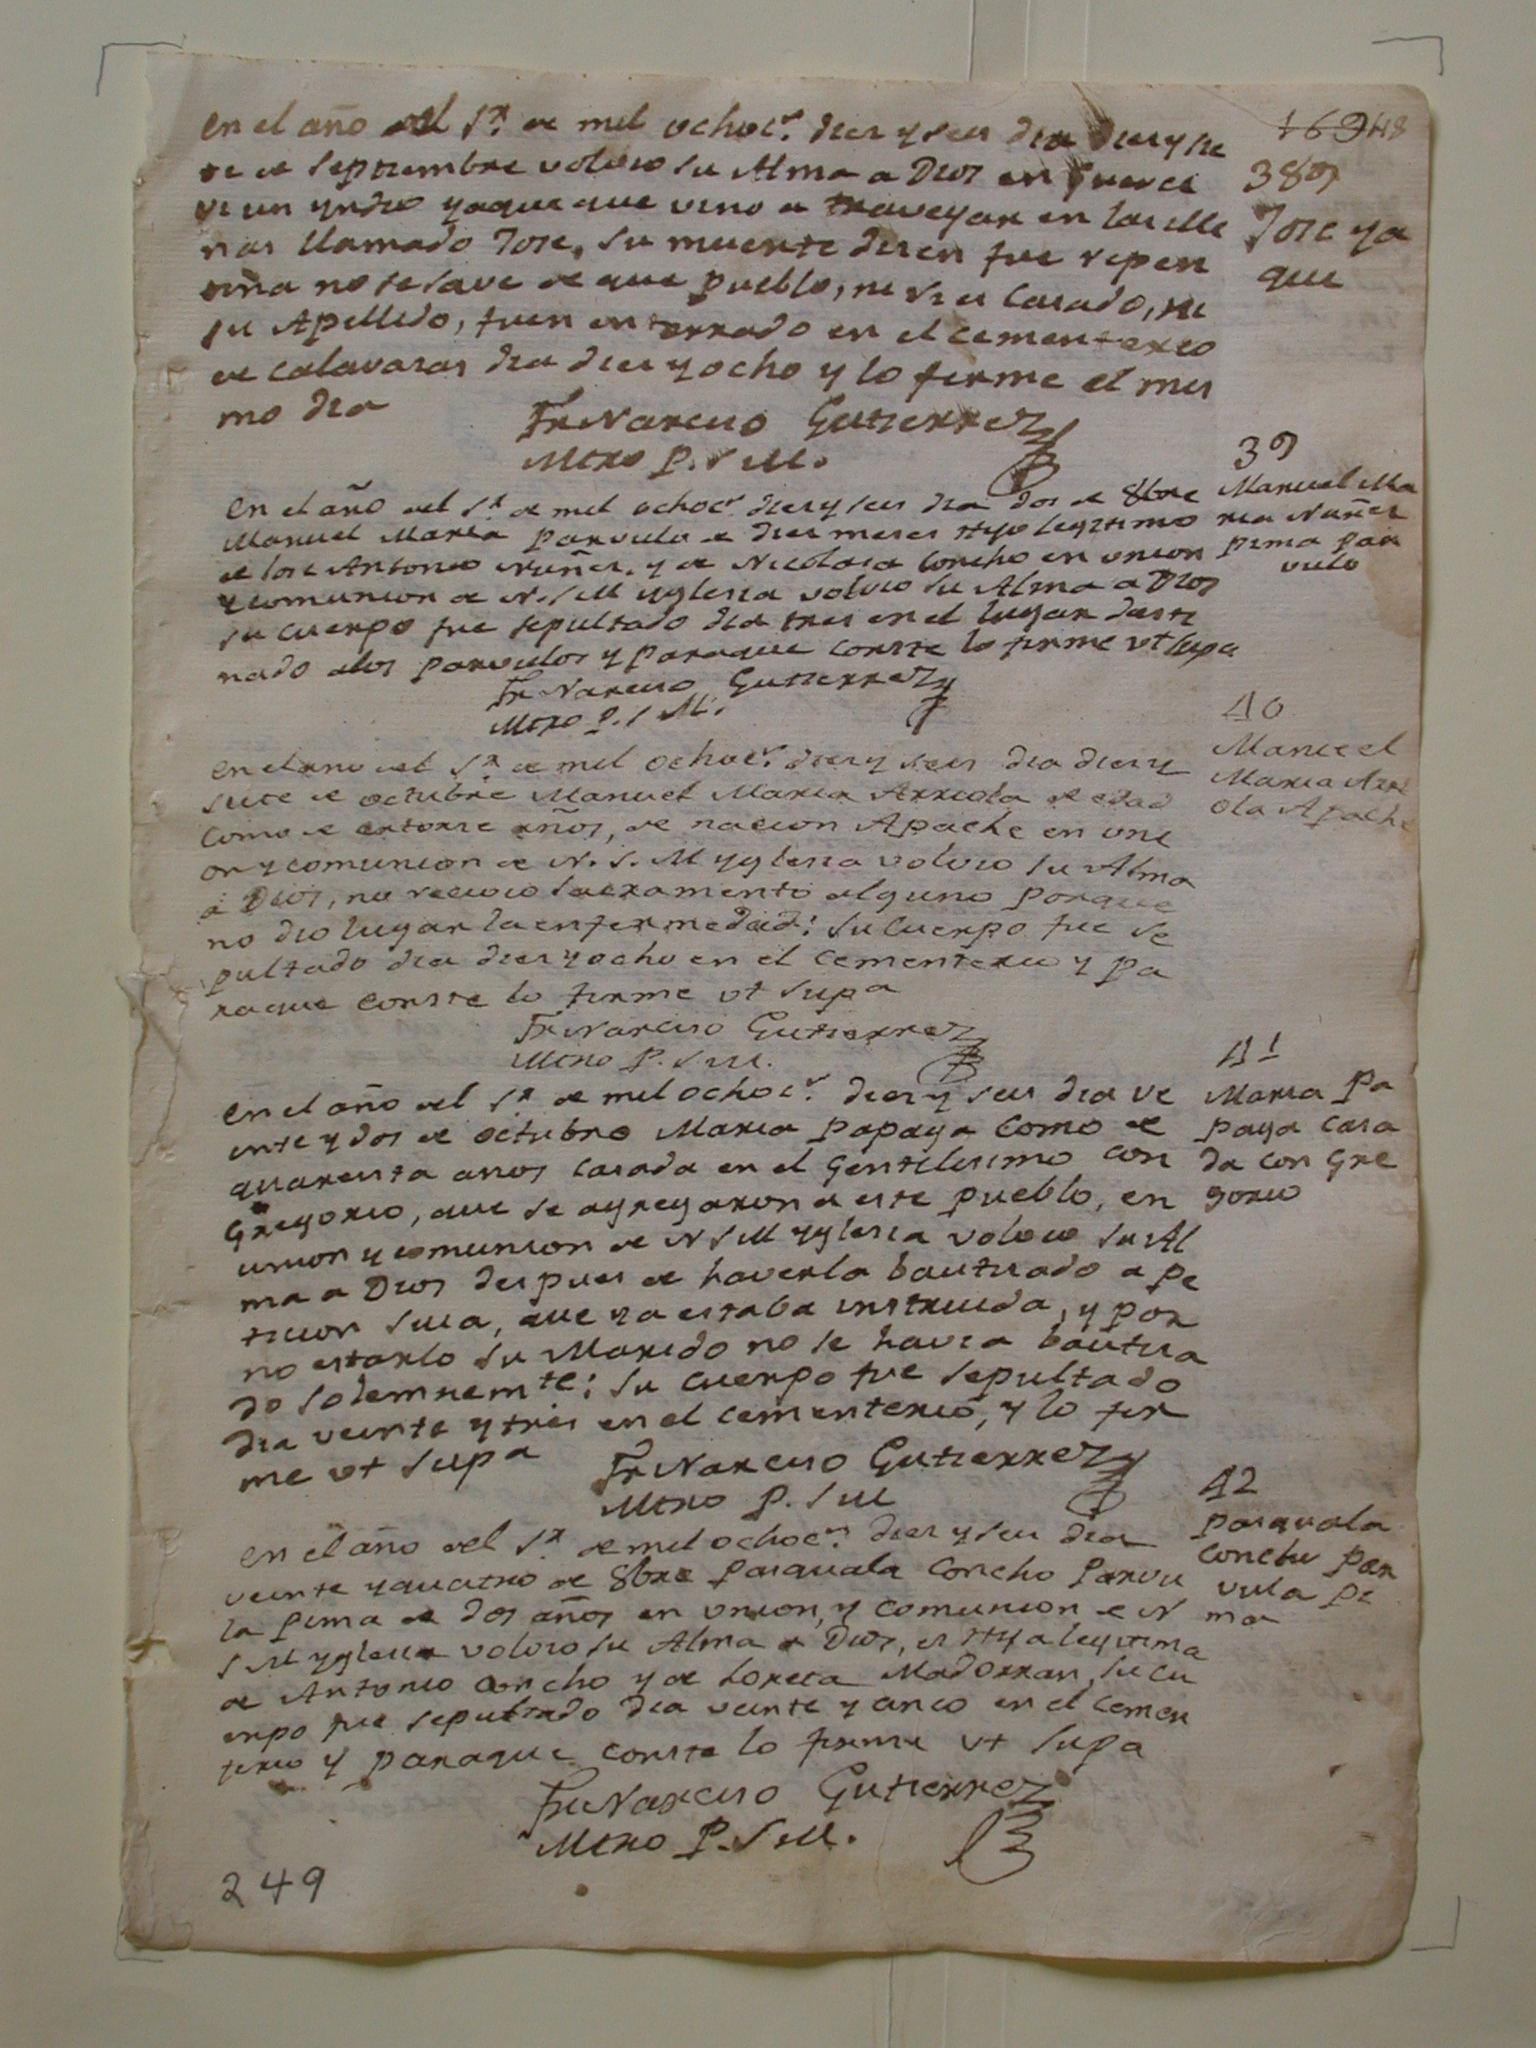 169 H8
en el año del Sr. de mil ochocs. dies y seis dia dies y sie
te de septiembre volvio su Alma a Dios en Gueve
vi un yndio yaque que vino a traveyar en las Me
nas llamado Jose, su muerte disen fue repen
tina no se save de que pueblo, ni si es Casado, ni
su Apellido, fuen enterrado en el cementerio
de calavasas dia dies y ocho y lo firme el mis
mo dia
Fr Narciso Gutierrez
Mtro P. S M.
38
Jose ya
que
en el año del Sr. de mil ochocs. dies y seis dia dos de 8bre
Manuel Maria parvulo de dies meses Hijo legitimo
de Jose Antonio Nuñes. y de Nicolasa Concho en union
y comunion de N. S M yglesia volvio su Alma a Dios
su cuerpo fue sepultado dia tres en el lugar desti
nado alos parvulos y paraque conste lo firme vt supa
Fr Narciso Gutierrez
Mtro P. S M.
39
Manuel Ma
ria Nuñes
pima par
vulo
en el ano del Sr. de mil ochocs. dies y seis dia dies y
siete de octubre Manuel Maria Arriola de edad
como de catorse años, de nacion Apache en uni
on y comunion de N. S. M yglesia volvio su Alma
a Dios, no recivio sacramento alguno porque
no dio lugar la enfermedad: su cuerpo fue se
pultado dia dies y ocho en el cementerio y pa
raque conste lo firme vt supa
Fr Narciso Gutierrez
Mtro P. S M.
40
Manuel
Maria Arri
ola Apache
en el año del Sr. de mil ochocs. dies y seis dia ve
inte y dos de octubre Maria Papaya como de
quarenta anos casada en el gentilisimo con
Gregorio, que se agregaron a este pueblo, en
union y comunion de N S M yglesia volvio su Al
ma a Dios despues de haverla bautisado a pe
ticion suia, que ya estaba instruida, y por
no estarlo su Marido no se havia bautisa
do solemnemte: su cuerpo fue sepultado
dia veinte y tres en el cementerio, y lo fir
me vt supa
Fr Narciso Gutierrez
Mtro P. S M
41
Maria Pa
paya casa
da con Gre
gorio
en el año del Sr. de mil ochocs. dies y seis dia
veinte y quatro de 8bre Pasquala Concho Parvu
la pima de dos años en union, y comunion de N
S M yglesia volvio su Alma a Dios, es Hija legitima
de Antonio Concho y de Loreta Madorran, su cu
erpo fue sepultado dia veinte y cinco en el cemen
terio y paraque conste lo firme vt supa
Fr Narciso Gutierrez
Mtro P. S M.
42
Pasquala
Concho par
vula pi
ma
249